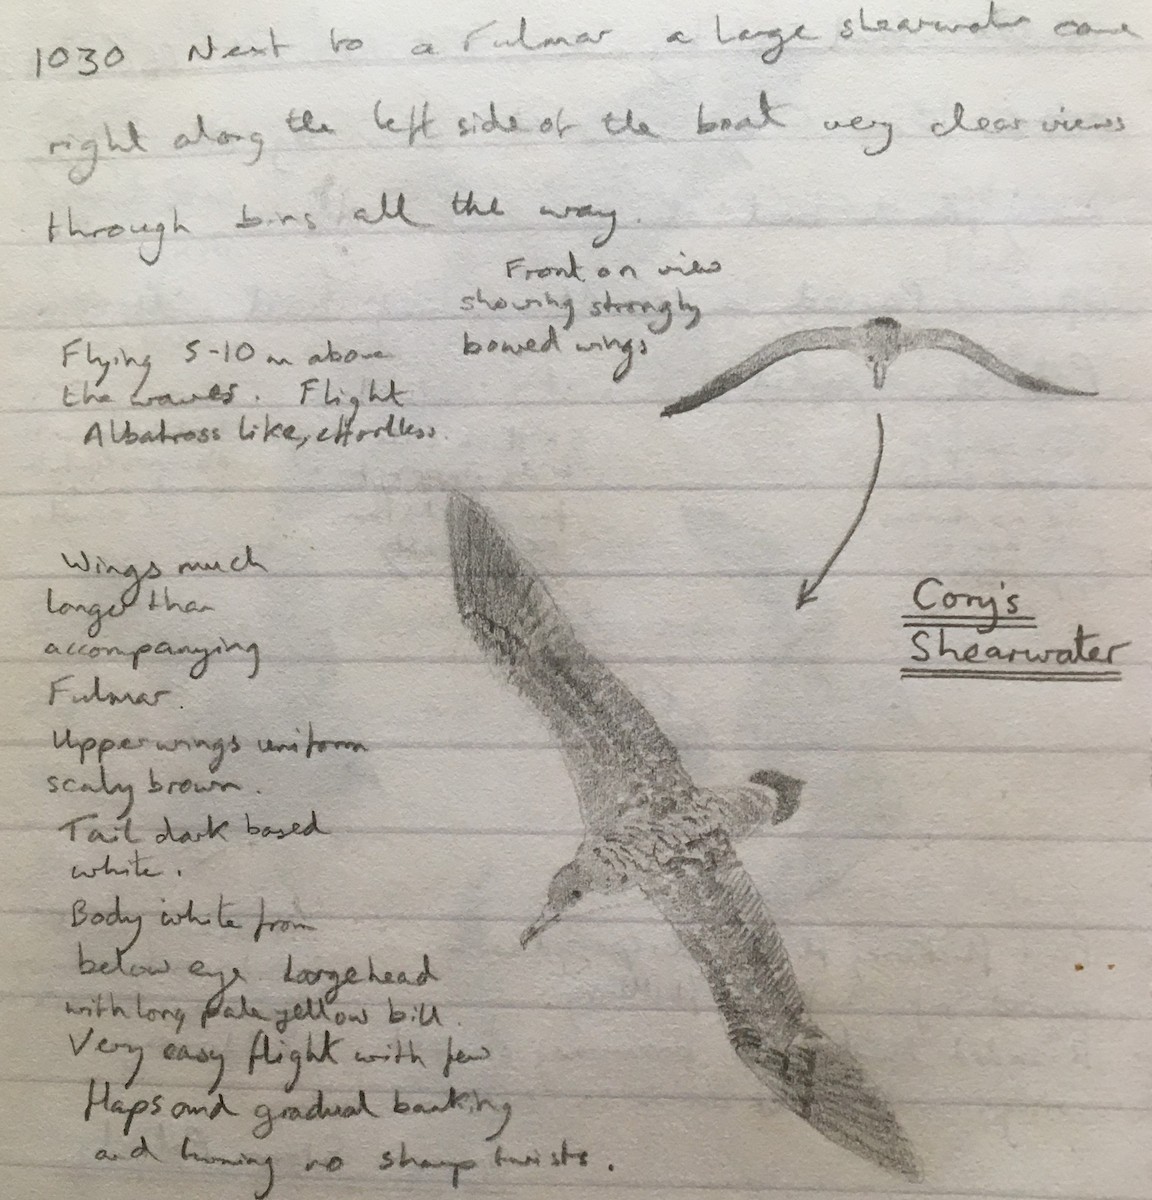 1030 Next to a Fulmar a large shearwater came
right along the left side of the boat very clear views
through bins all the way.
Front on view
showing strongly
bowed wings
Flying 5-10 m above
the waves. Flight
Albatross like, effortless.
Cory's
Shearwater
Wings much
longer than
accompanying
Fulmar.
Upperwings uniform
scaly brown.
Tail dark based
white.
Body white from
below eye. Large head
with long pale yellow bill.
Very easy flight with few
flaps and gradual banking
and turning no sharp twists.